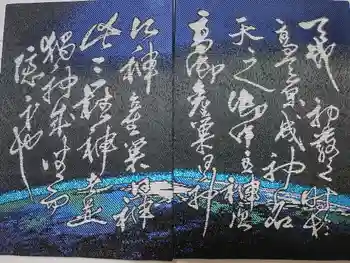 天地初發之時於
高天原成神名
天之御中主神次
高御産巣日神
次神産巣日神
此三柱神者並
獨神成坐而
隱身也